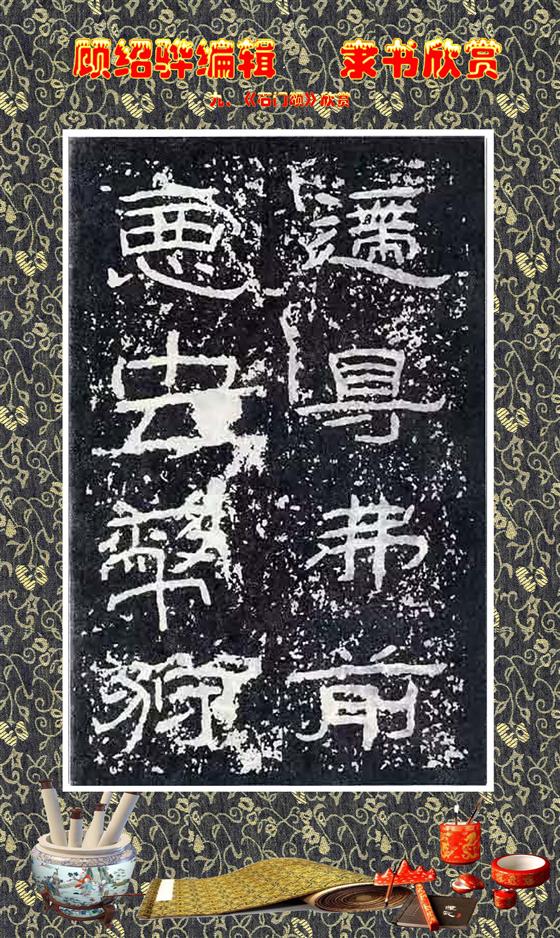 顾绍骅编辑 隶书欣赏
九、《石门颂》欣赏
遰㝵弗前
惡虫狩